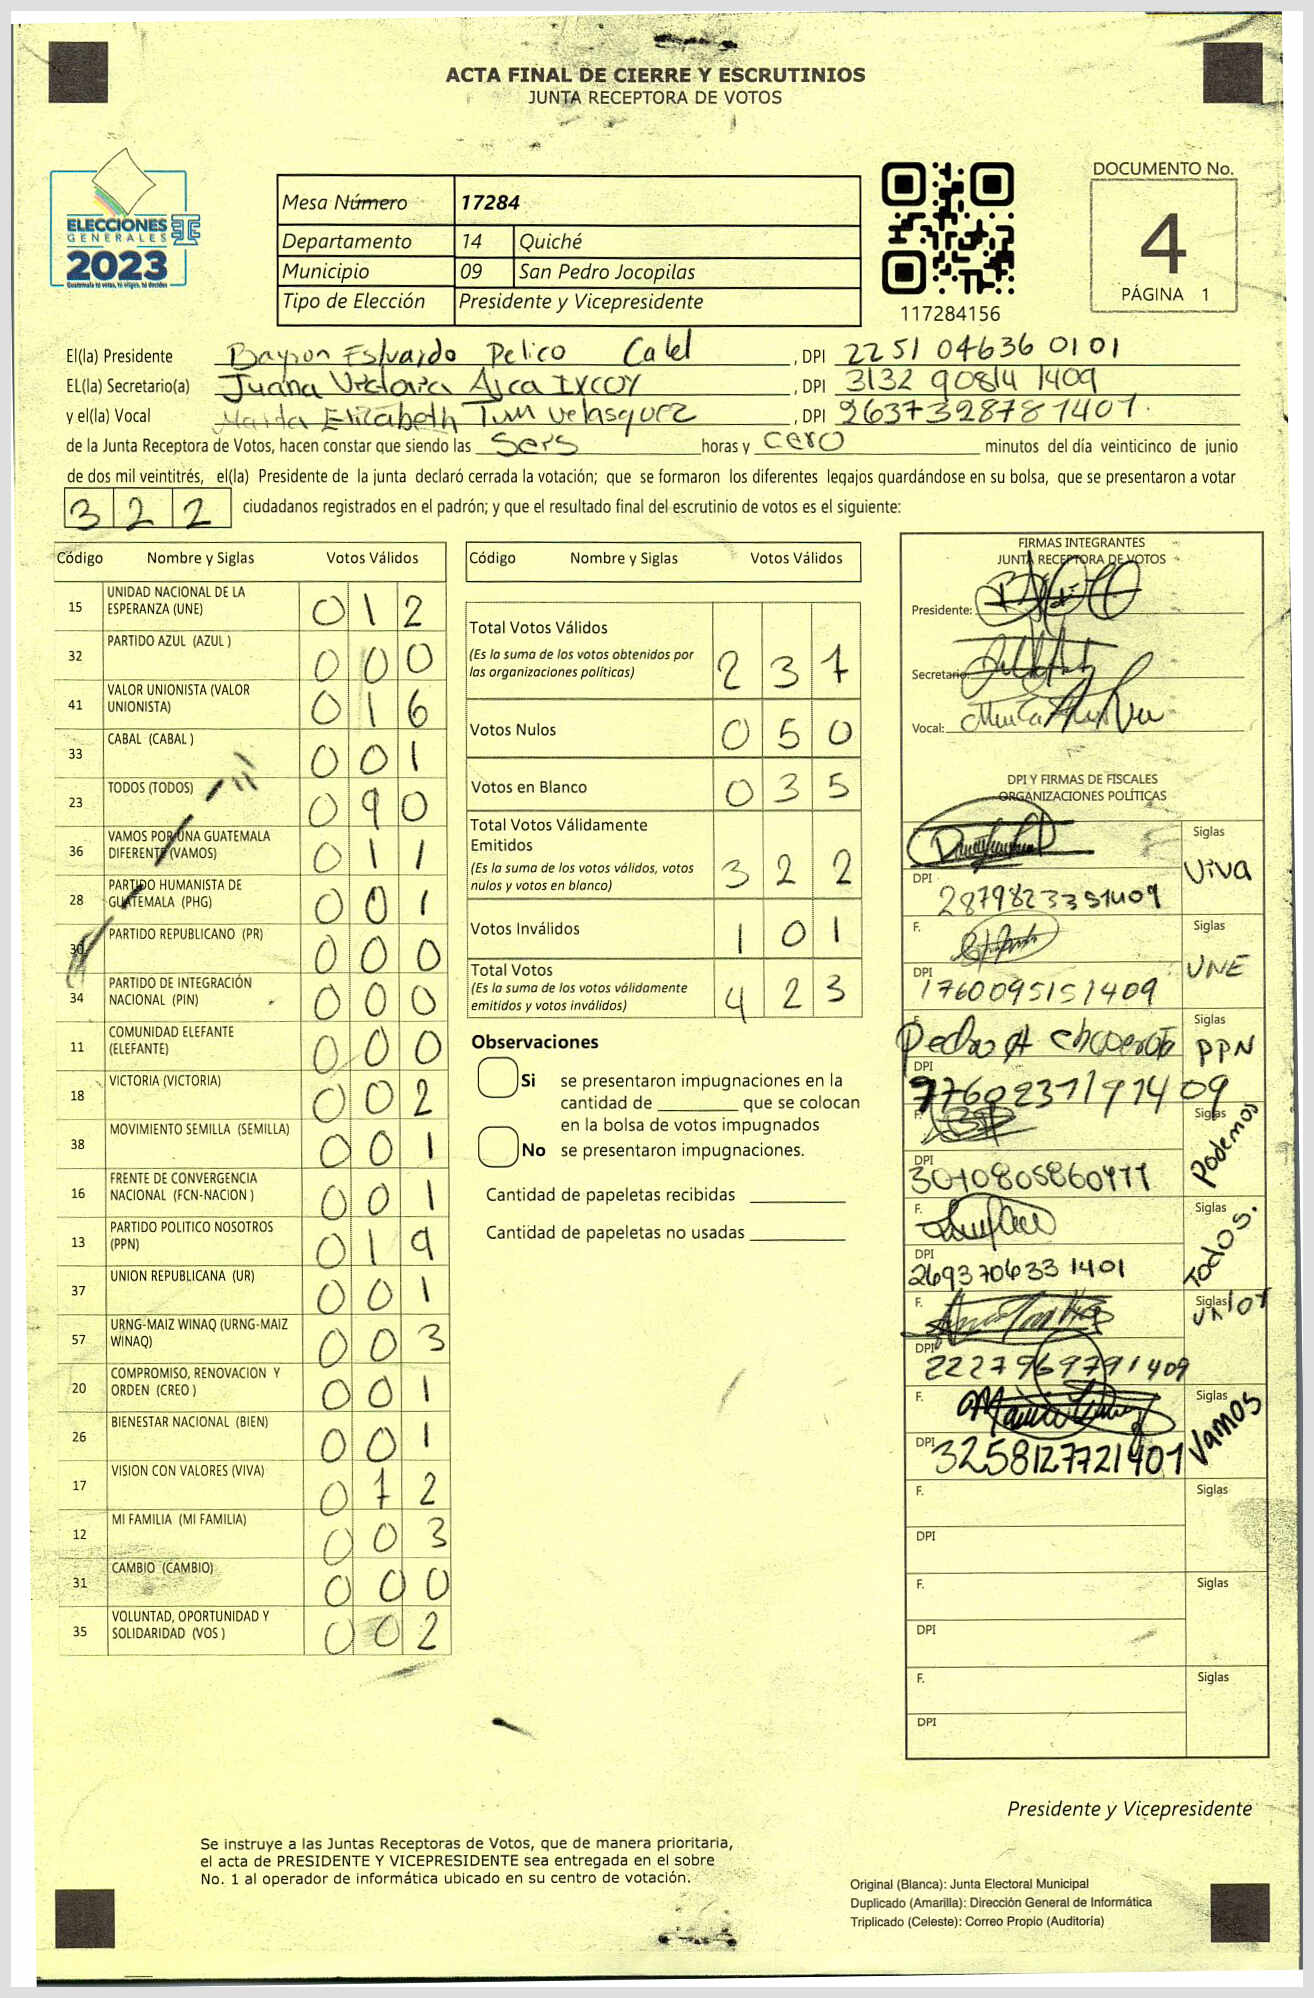 ACTA FINAL DE CIERRE Y ESCRUTINIOS
JUNTA RECEPTORA DE VOTOS
ELECCIONES
GENERALES
2023
Guatemala tú votas, tú eliges, tú decides
Mesa Número 17284
Departamento 14 Quiché
Municipio 09 San Pedro Jocopilas
Tipo de Elección Presidente y Vicepresidente
117284156
DOCUMENTO No.
4
PÁGINA 1
El(la) Presidente Bayron Estuardo Pelico Catel, DPI 2251 04636 0101
EL(la) Secretario(a) Juana Victoria Ajca IXCOY, DPI 3132 90814 1409
y el(la) Vocal Elizabeth Tum Velasquez, DPI 2637328781401.
de la Junta Receptora de Votos, hacen constar que siendo las Seis horas y cero minutos del día veinticinco de junio
de dos mil veintitrés, el(la) Presidente de la junta declaró cerrada la votación; que se formaron los diferentes legajos guardándose en su bolsa, que se presentaron a votar
322 ciudadanos registrados en el padrón; y que el resultado final del escrutinio de votos es el siguiente:
Código Nombre y Siglas Votos Válidos
15 UNIDAD NACIONAL DE LA ESPERANZA (UNE) 012
32 PARTIDO AZUL (AZUL ) 000
41 VALOR UNIONISTA (VALOR UNIONISTA) 016
33 CABAL (CABAL ) 001
23 TODOS (TODOS) 090
36 VAMOS POR UNA GUATEMALA DIFERENTE (VAMOS) 011
28 PARTIDO HUMANISTA DE GUATEMALA (PHG) 001
30 PARTIDO REPUBLICANO (PR) 000
34 PARTIDO DE INTEGRACIÓN NACIONAL (PIN) 000
11 COMUNIDAD ELEFANTE (ELEFANTE) 000
18 VICTORIA (VICTORIA) 002
38 MOVIMIENTO SEMILLA (SEMILLA) 001
16 FRENTE DE CONVERGENCIA NACIONAL (FCN-NACION ) 001
13 PARTIDO POLITICO NOSOTROS (PPN) 019
37 UNION REPUBLICANA (UR) 001
57 URNG-MAIZ WINAQ (URNG-MAIZ WINAQ) 003
20 COMPROMISO, RENOVACION Y ORDEN (CREO ) 001
26 BIENESTAR NACIONAL (BIEN) 001
17 VISION CON VALORES (VIVA) 072
12 MI FAMILIA (MI FAMILIA) 003
31 CAMBIO (CAMBIO) 000
35 VOLUNTAD, OPORTUNIDAD Y SOLIDARIDAD (VOS ) 002
Código Nombre y Siglas Votos Válidos
Total Votos Válidos 237
(Es la suma de los votos obtenidos por
las organizaciones políticas)
Votos Nulos 050
Votos en Blanco 035
Total Votos Válidamente
Emitidos 322
(Es la suma de los votos válidos, votos
nulos y votos en blanco)
Votos Inválidos 101
Total Votos 423
(Es la suma de los votos válidamente
emitidos y votos inválidos)
Observaciones
Si se presentaron impugnaciones en la
cantidad de ________ que se colocan
en la bolsa de votos impugnados
No se presentaron impugnaciones.
Cantidad de papeletas recibidas
Cantidad de papeletas no usadas
FIRMAS INTEGRANTES
JUNTA RECEPTORA DE VOTOS
Presidente:
Secretario:
Vocal:
DPI Y FIRMAS DE FISCALES
ORGANIZACIONES POLÍTICAS
Siglas Viva
DPI 2879823351409
F. Siglas UNE
DPI 1760095151409
F. Pedro Siglas PPN
DPI 1760237191409
F. Siglas Podemos
DPI
F. Siglas Todos.
DPI 2693706331401
F. Siglas
DPI 2227969791409
F. Siglas Vamos
DPI 3258127721401
F. Siglas
DPI
F. Siglas
DPI
F. Siglas
DPI
Presidente y Vicepresidente
Se instruye a las Juntas Receptoras de Votos, que de manera prioritaria,
el acta de PRESIDENTE Y VICEPRESIDENTE sea entregada en el sobre
No. 1 al operador de informática ubicado en su centro de votación.
Original (Blanca): Junta Electoral Municipal
Duplicado (Amarilla): Dirección General de Informática
Triplicado (Celeste): Correo Propio (Auditoría)